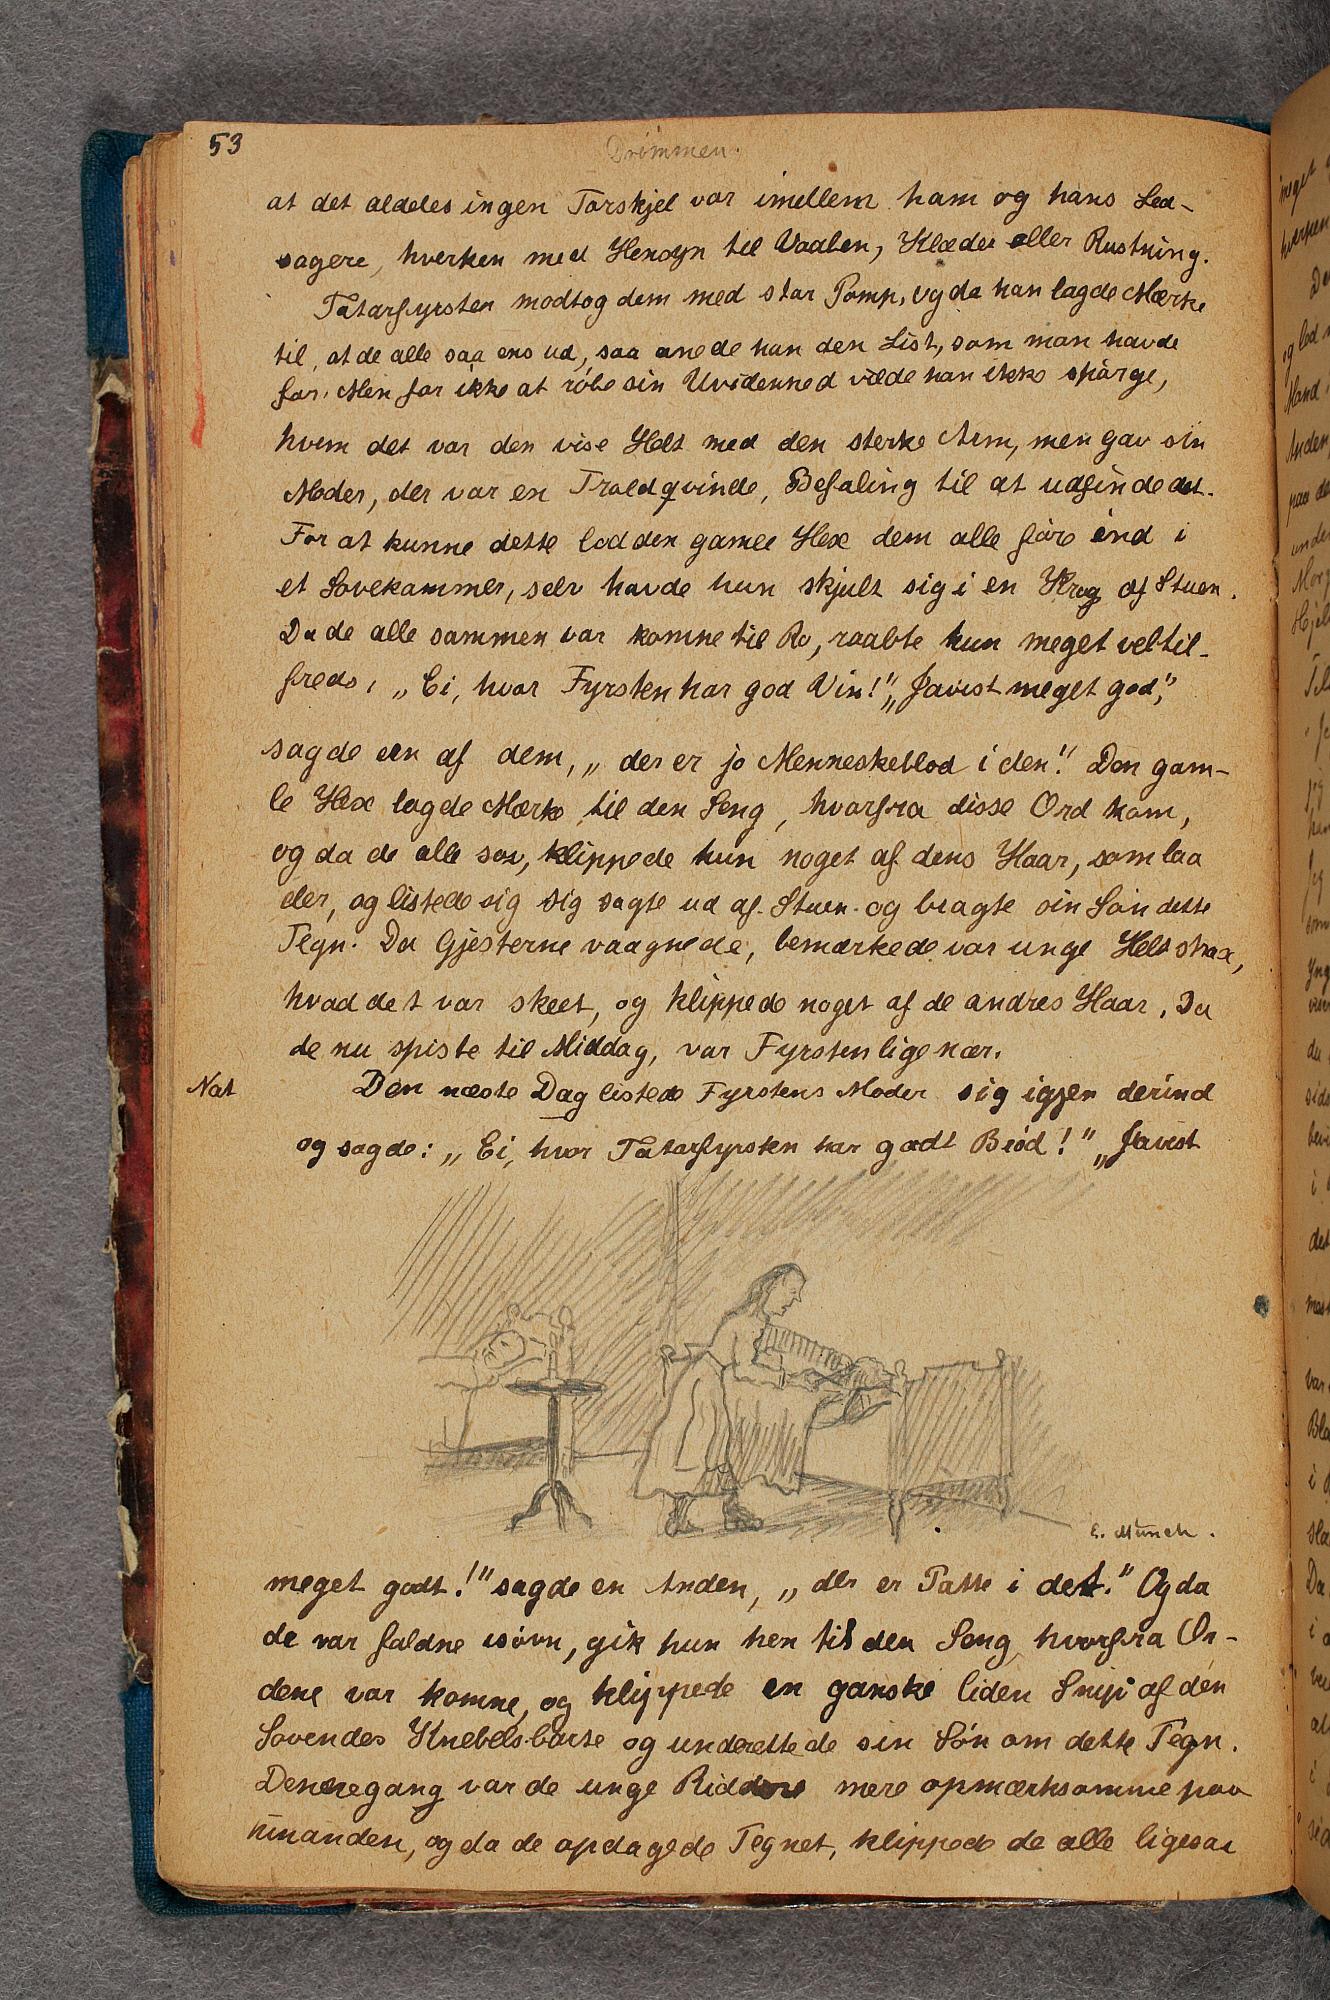 53
Drömmen.
at det aldeles ingen Forskjel var imellem ham og hans Led-
sagere, hverken med Hensyn til Vaaben, Klæder eller Rustning.
Tatarfyrsten modtog dem med stor Pomp, og da han lagde Mærke
til, at de alle saa ens ud, saa anede han den List, som man havde
for. Men for ikke at röbe sin Uvidenhed vilde han ikke spörge,
hvem det var den vise Helt med den sterke Arm, men gav sin
Moder, der var en Troldqvinde, Befaling til at udfinde det.
For at kunne dette lod den gamle Hex dem alle före ind i
et Sovekammer, selv havde hun skjult sig i en Krog af Stuen.
Da de alle sammen var komne til Ro, raabte hun meget veltil-
freds, „Ei, hvor Fyrsten har god Vin!" „Javist meget god",
sagde en af dem, „der er jo Menneskeblod i den!" Den gam-
le Hex lagde Mærke til den Seng, hvorfra disse Ord kom,
og da de alle sov, klippede hun noget af dens Haar, som laa
der, og listede sig sig sagte ud af Stuen og bragte sin Sön dette
Tegn. Da Gjesterne vaagnede, bemærkede vor unge Helt strax,
hvad det var skeet, og klippede noget af de andres Haar. Da
de nu spiste til Middag, var Fyrsten lige nær.
Nat
Den næste Dag listede Fyrstens Moder sig igjen derind
og sagde: „Ei, hvor Tatarfyrsten har godt Bröd!" „Javist
E. Munch.
meget godt!" sagde en Anden, „der er Patte i det." Og da
de var faldne isövn, gik hun hen til den Seng hvorfra Or-
dene var komne, og klippede en ganske liden Snip af den
Sovendes Knebelsbarte og underettede sin Sön om dette Tegn.
Dennegang var de unge Riddere mere opmærksomme paa
hinanden, og da de opdagede Tegnet, klippede de alle ligesaa